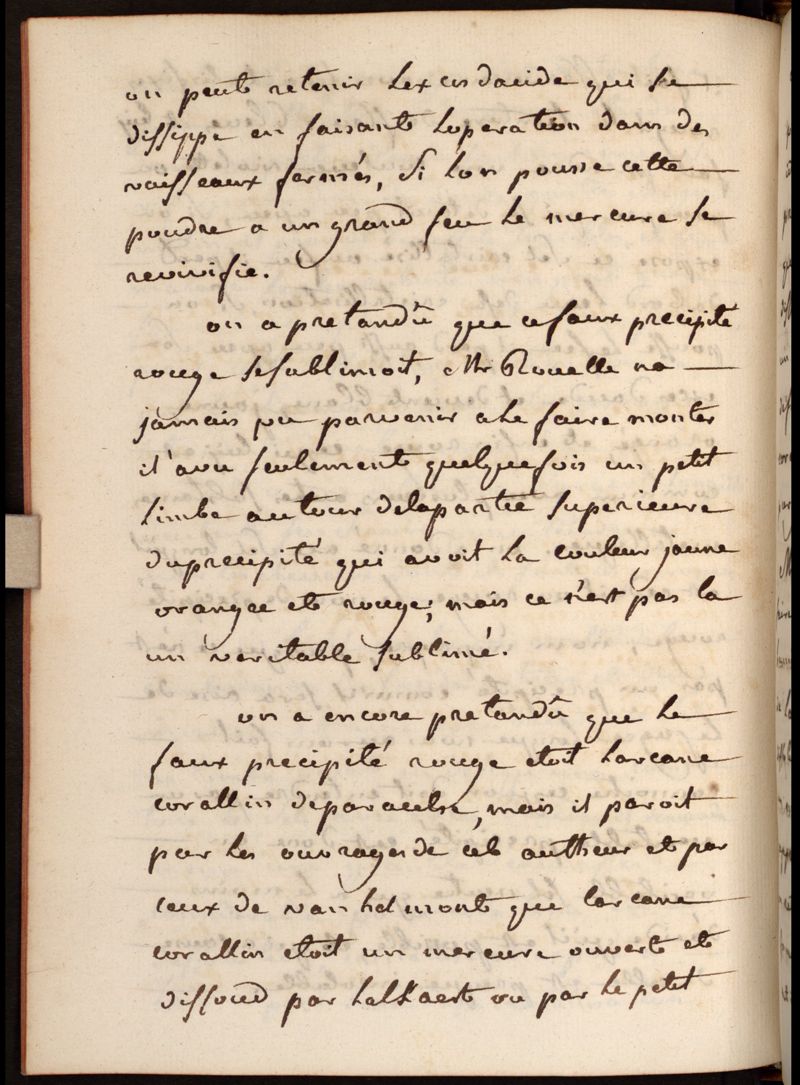 on peut retenir lexcès dacide qui se
dissippe en faisant loperation dans des
vaisseaux fermés, Si lon pousse cette
poudre a un grand feu le mercure se
revivifie.
on a pretandû que ce faux precipité
rouge se sublimoit, Mr Rouelle na
jamais pu parvenir a le faire monter
il avu seulement quelquefois un petit
limbe autour delapartie superieure
duprecipité qui avoit la couleur jaune
orangee et rouge, mais ce n'est pas la
un veritable sublimé.
on a encore pretandû que le
faux precipité rouge etoit larcane
corallin deparacelse, mais il paroit
par les ouvrages de cet autheur et par
ceux de van helmont que larcane
corallin etoit un mercure ouvert et
dissoud par lalkaest ou par le petit